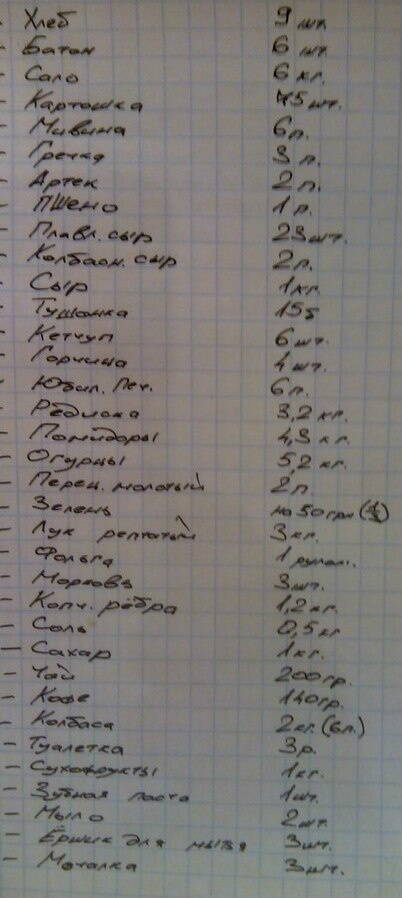 - Хлеб 9 шт.
- Батон 6 шт.
- Сало 6 кг.
- Картошка 75 шт.
- Мивина 6п.
- Гречка 3 п.
- Артек 2 п.
- Пшено 1 п.
- Плавл. сыр 23 шт.
- Колбасн. сыр 2п.
- Сыр 1 кг.
- Тушонка 15б
- Кетчуп 6 шт.
- Горчица 4 шт.
- Юбил. Печ. 6 п.
- Редиска 3,2 кг.
- Помидоры 4,3 кг.
- Огурцы 5,2 кг.
- Перец. молотый 2п
- Зелень на 50грн
- Лук репчатый 3 кг.
- Фольга 1 рулон.
- Морковь 3 шт.
- Копч. рёбра 1,2 кг.
- Соль 0,5 кг
- Сахар 1 кг.
- Чай 200 гр.
- Кофе 140 гр.
- Колбаса 2 кг. (6п.)
- Туалетка 3 р.
- Сухофрукты 1 кг.
- Зубная паста 1 шт.
- Мыло 2 шт.
- Ёршик для мытья 3 шт.
- Мочалка 3 шт.